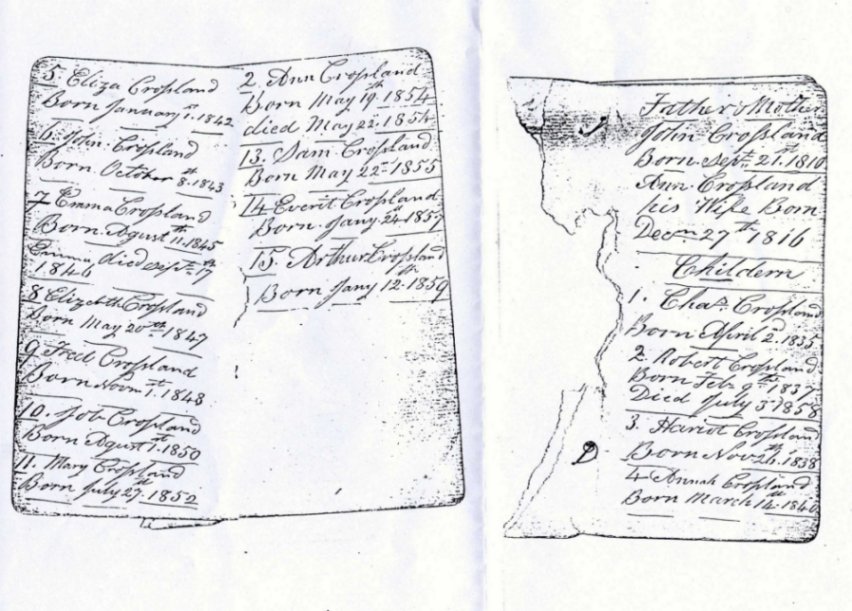 5. Eliza Croſsland
Born January 1st. 1842
6. John Croſsland
Born October 8th. 1843
7 Emma Croſsland
Born Agust 11th. 1845
Emma died Sept. 17th
1846
8 Elizebth Croſsland
Born May 20th. 1847
9 Fred Croſsland
Born Novm 1st. 1848
10. Job Croſsland
Born Agust 1st. 1850
11. Mary Croſsland
Born July 27th. 1852
2. Ann Croſsland
Born May 19th. 1854
died May 22. 1854
13. Sam Croſsland
Born May 22. 1855
14 Everit Croſsland
Born Jany 24th 1857
15. Arthur Croſsland
Born Jany 12th. 1859
Father & Mother
John Croſsland
Born Sept. 21. 1810
Ann Croſsland
his Wife Born
Decm 27th 1816
Childern
1. Chas. Croſsland
Born April 2d. 1835
2. Robert Croſsland
Born Feb 9th. 1837
Died July 3d 1858
3. Hariot Croſsland
Born Nov 26th. 1838
4 Annah Croſsland
Born March 14th. 1840